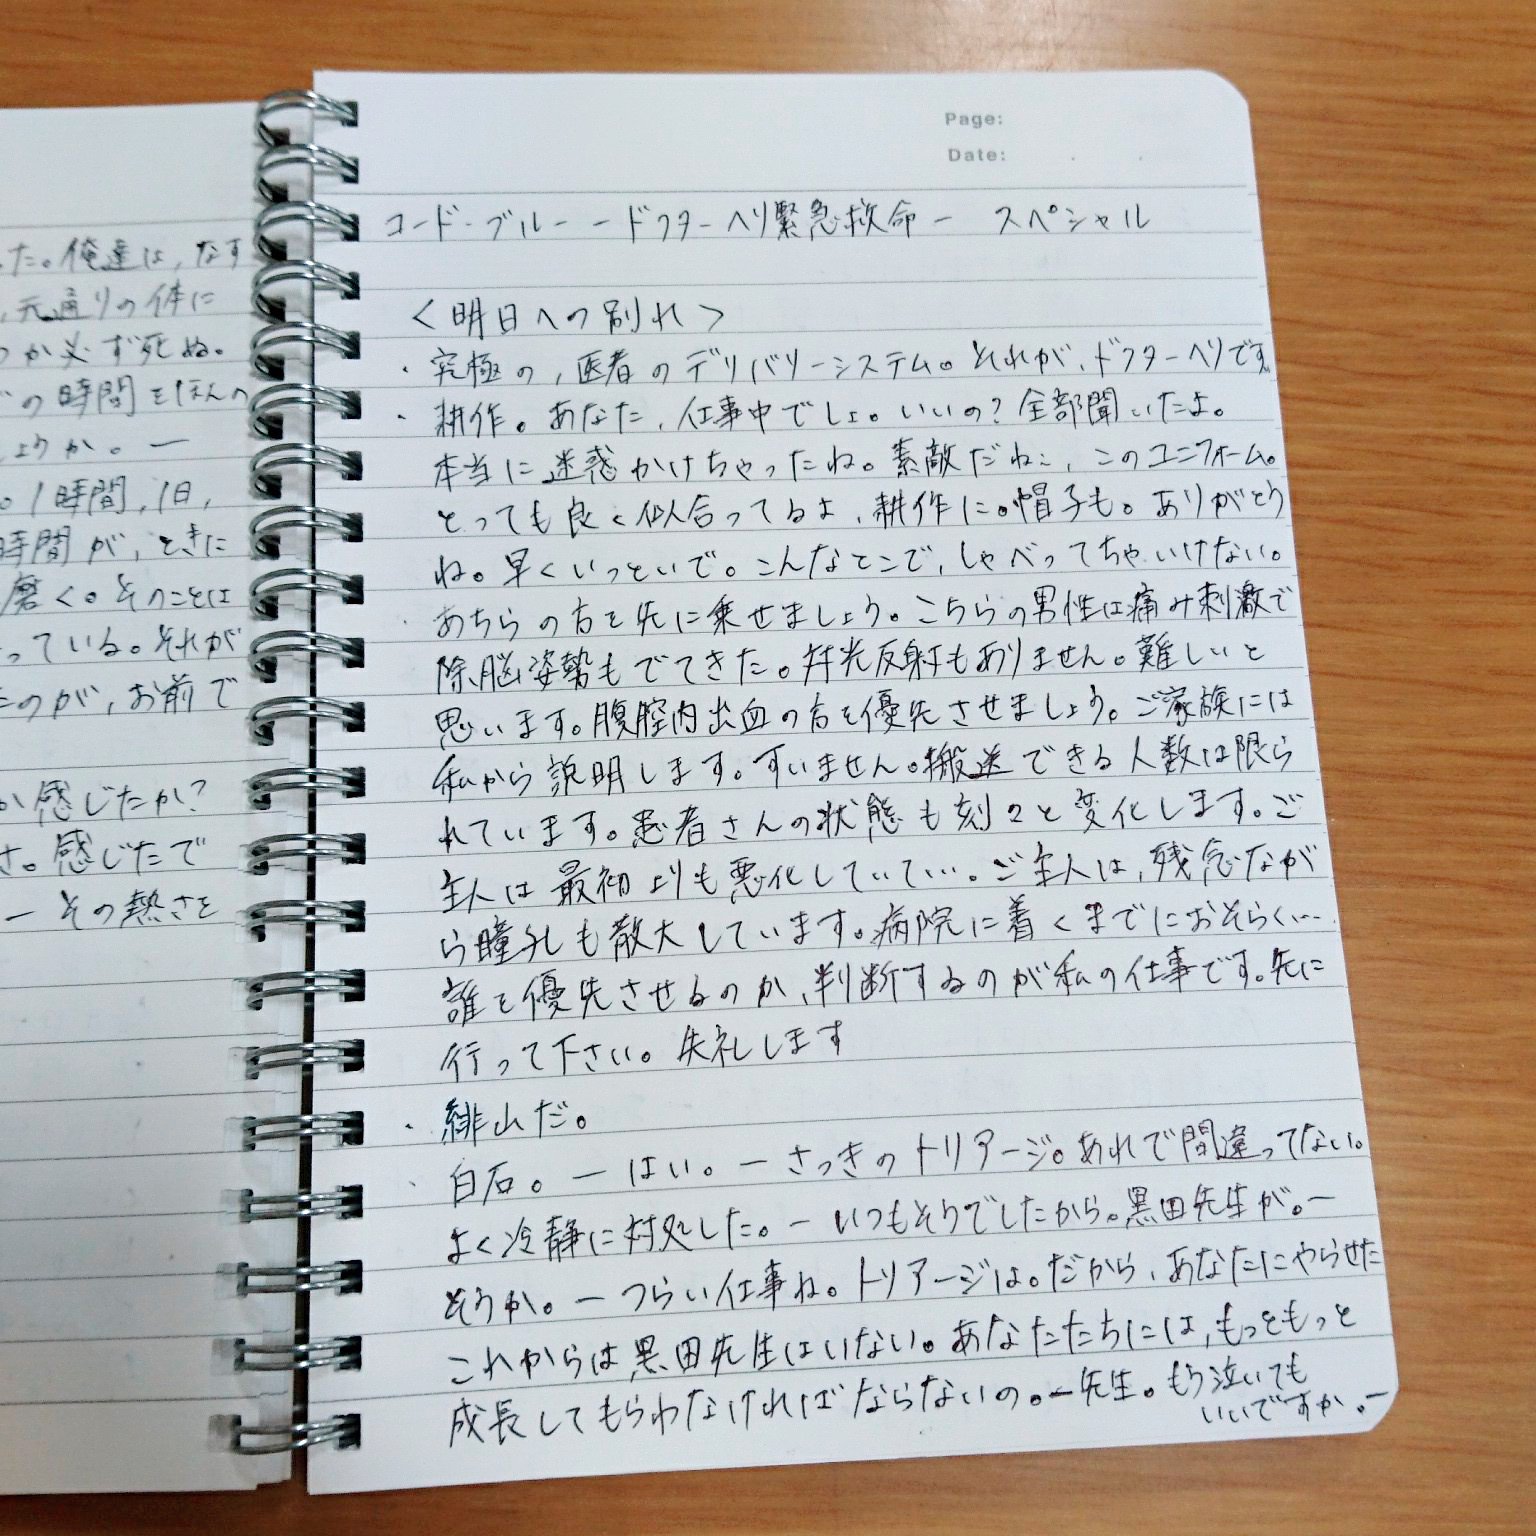 た。俺達は、なす
、元通りの体に
つか必ず死ぬ。
の時間をほんの
しょうか。ー
。1時間、1日、
時間が、ときに
磨く。そのことは
っている。それが
たのが、お前で
か感じたか?
さ。感じたで
ー その熱さを
Page:
Date:
コード・ブルー ードクターヘリ緊急救命ー スペシャル
<明日への別れ>
・究極の、医者のデリバリーシステム。それが、ドクターヘリです。
・耕作。あなた、仕事中でしょ。いいの?全部聞いたよ。
本当に迷惑かけちゃったね。素敵だね、このユニフォーム。
とっても良く似合ってるよ、耕作に。帽子も。ありがとう
ね。早くいっといで。こんなとこで、しゃべってちゃいけない。
・あちらの方を先に乗せましょう。こちらの男性は痛み刺激で
除脳姿勢もでてきた。対光反射もありません。難しいと
思います。腹腔内出血の方を優先させましょう。ご家族には
私から説明します。すいません。搬送できる人数は限ら
れています。患者さんの状態も刻々と変化します。ご
主人は最初よりも悪化していて…。ご主人は、残念なが
ら瞳孔も散大しています。病院に着くまでにおそらく…
誰を優先させるのか、判断するのが私の仕事です。先に
行って下さい。失礼します
・緋山だ。
・白石。ーはい。ーさっきのトリアージ。あれで間違ってない。
よく冷静に対処した。ーいつもそうでしたから。黒田先生が。ー
そうか。ーつらい仕事ね。トリアージは。だから、あなたにやらせた
これからは黒田先生はいない。あなたたちには、もっともっと
成長してもらわなければならないの。ー先生。もう泣いても
いいですか。ー